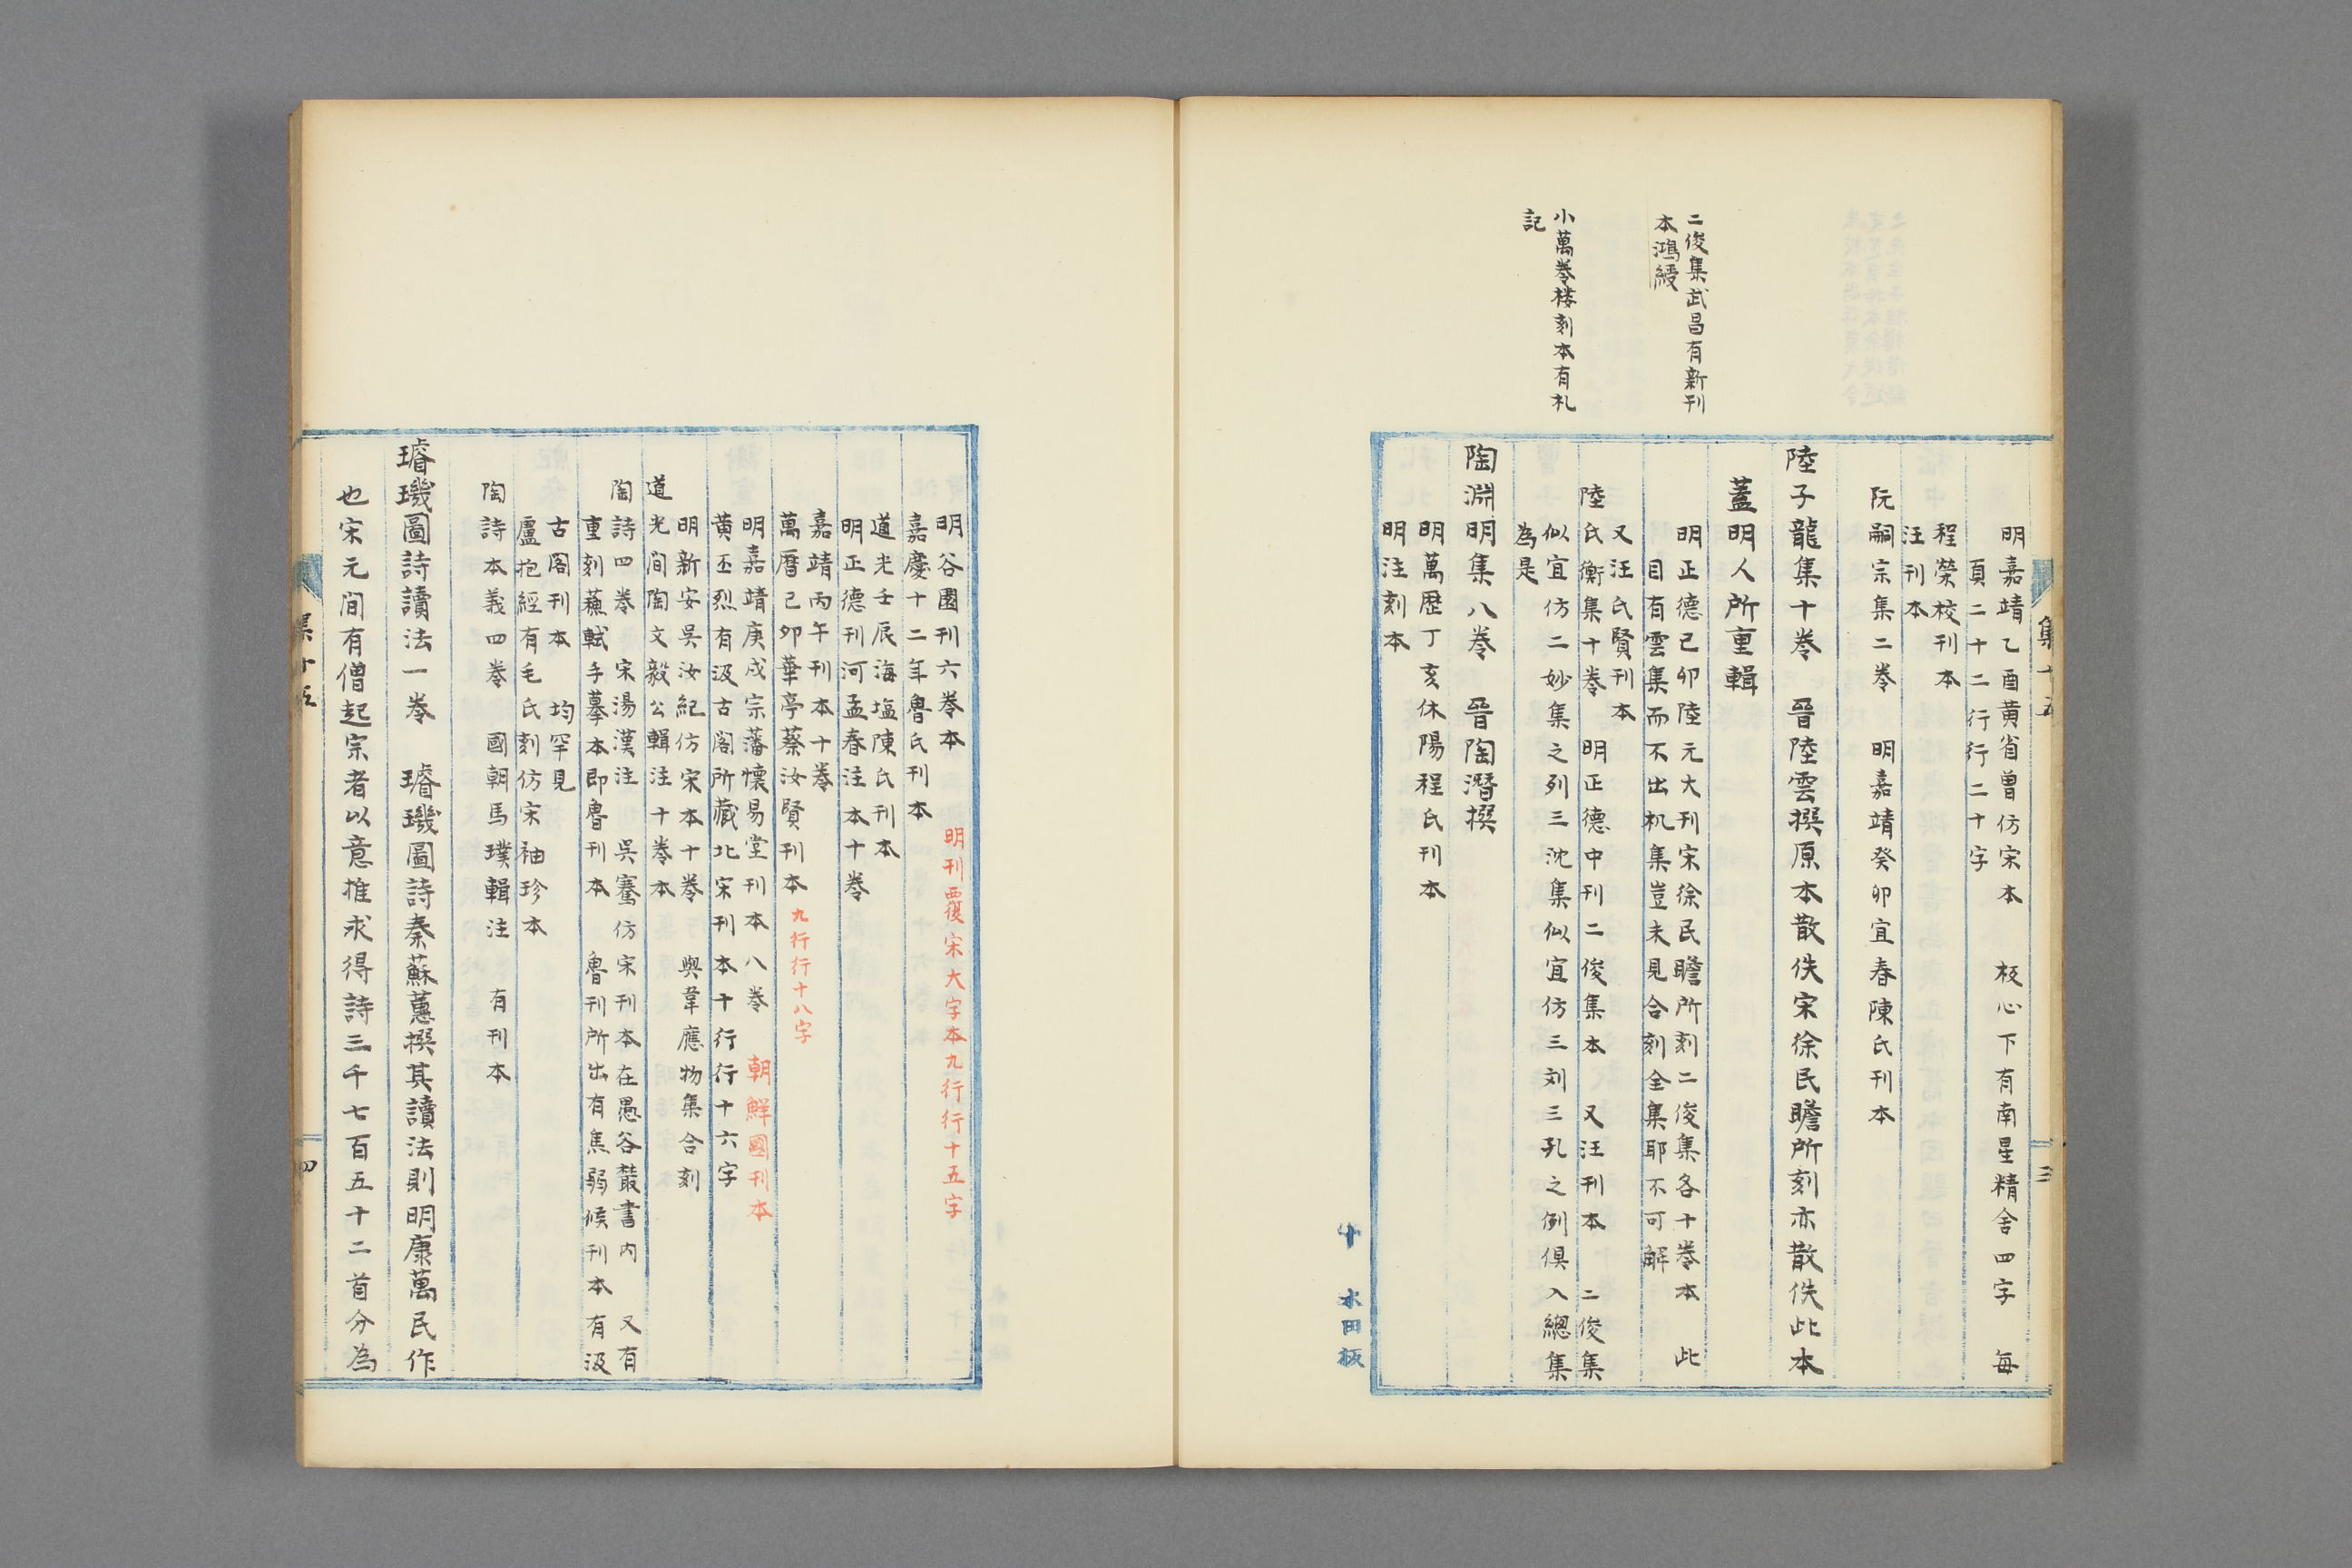 二俊集武昌有新刊
本鴻綬
小萬卷樓刻本有札
記
集十五
三
明嘉靖乙酉黄省曾仿宋本 板心下有南星精舍四字 每
頁二十二行行二十字
程榮校刊本
汪刊本
阮嗣宗集二卷 明嘉靖癸卯宜春陳氏刊本
陸子龍集十卷 晉陸雲撰原本散佚宋徐民瞻所刻亦散佚此本
蓋明人所重輯
明正德己卯陸元大刊宋徐民瞻所刻二俊集各十卷本 此
目有雲集而不出机集豈未見合刻全集耶不可解
又汪氏賢刊本
陸氏衡集十卷 明正德中刊二俊集本 又汪刊本 二俊集
似宜仿二妙集之列三沈集似宜仿三刘三孔之例俱入總集
為是
陶淵明集八卷 晉陶潛撰
明萬歷丁亥休陽程氏刊本
明注刻本
十 水田板
明谷園刊六卷本 明刊覆宋大字本九行行十五字
嘉慶十二年魯氏刊本
道光壬辰海塩陳氏刊本
明正德刊河孟春注本十卷
嘉靖丙午刊本十卷
萬曆己卯華亭蔡汝賢刊本 九行行十八字
明嘉靖庚戌宗藩懷易堂刊本八卷 朝鮮國刊本
黄丕烈有汲古閣所藏北宋刊本十行行十六字
明新安吳汝紀仿宋本十卷 與韋應物集合刻
道光间陶文毅公輯注十卷本
陶詩四卷 宋湯漢注 吳騫仿宋刊本在愚谷叢書内 又有
重刻蘇軾手摹本即魯刊本 魯刊所出有焦弱候刊本 有汲
古閣刊本 均罕見
盧抱經有毛氏刻仿宋袖珍本
陶詩本義四卷 國朝馬璞輯注 有刊本
璿璣圖詩讀法一卷 璿璣圖詩秦蘇蕙撰其讀法則明康萬民作
也宋元间有僧起宗者以意推求得詩三千七百五十二首分為
集十五
四